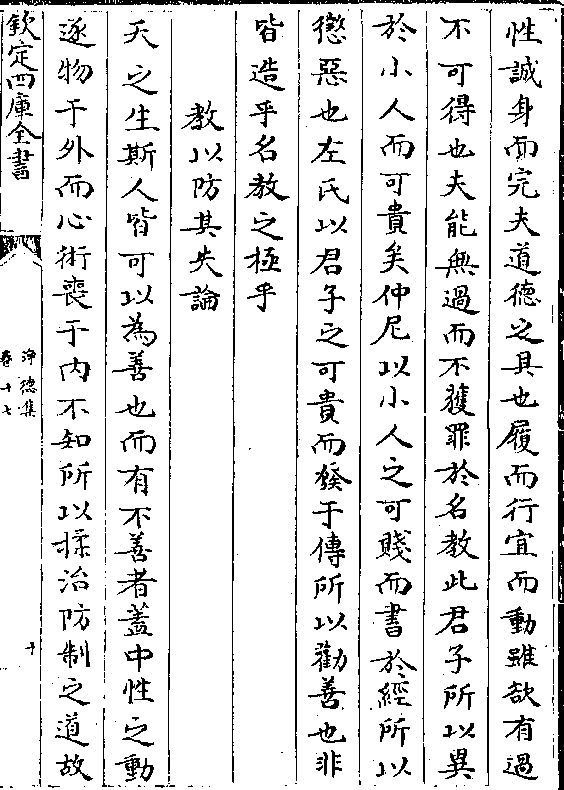 性誠身而完夫道德之具也履而行宜而動雖欲有過
不可得也夫能無過而不獲罪於名教此君子所以異
於小人而可貴矣仲尼以小人之可賤而書於經所以
懲惡也左氏以君子之可貴而發于傳所以勸善也非
皆造乎名教之極乎
教以防其失論
天之生斯人皆可以為善也而有不善者蓋中性之動
逐物于外而心術喪于内不知所以揉治防制之道故
欽定四庫全書
淨德集
卷十七
十